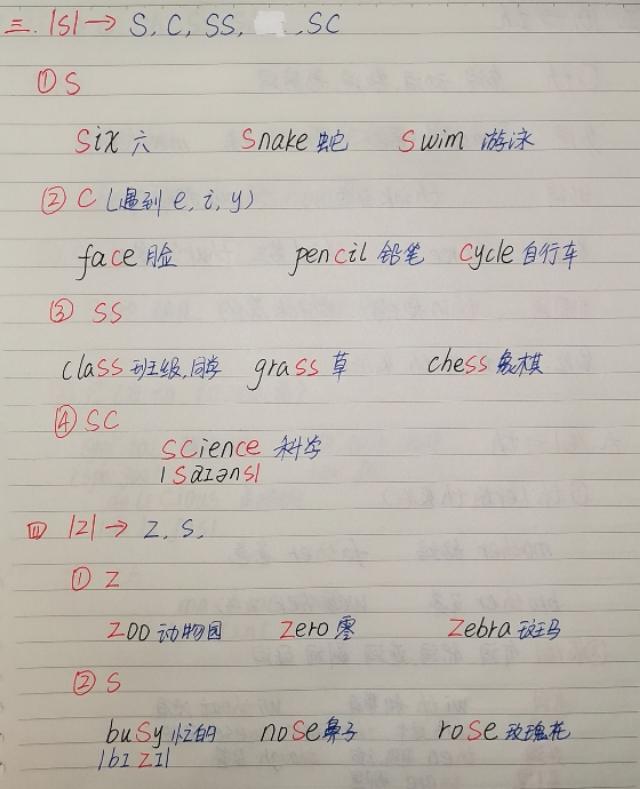 三. |s| → S, C, SS, , SC
① S
Six 六 Snake 蛇 Swim 游泳
② C (遇到 e, i, y)
face 脸 pencil 铅笔 Cycle 自行车
③ SS
class 班级,同学 grass 草 chess 象棋
④ SC
SCience 科学
|Saɪəns|
四 |z| → Z, S,
① Z
Zoo 动物园 Zero 零 Zebra 斑马
② S
buSy 忙的 noSe 鼻子 roSe 玫瑰花
|bɪ ZI|